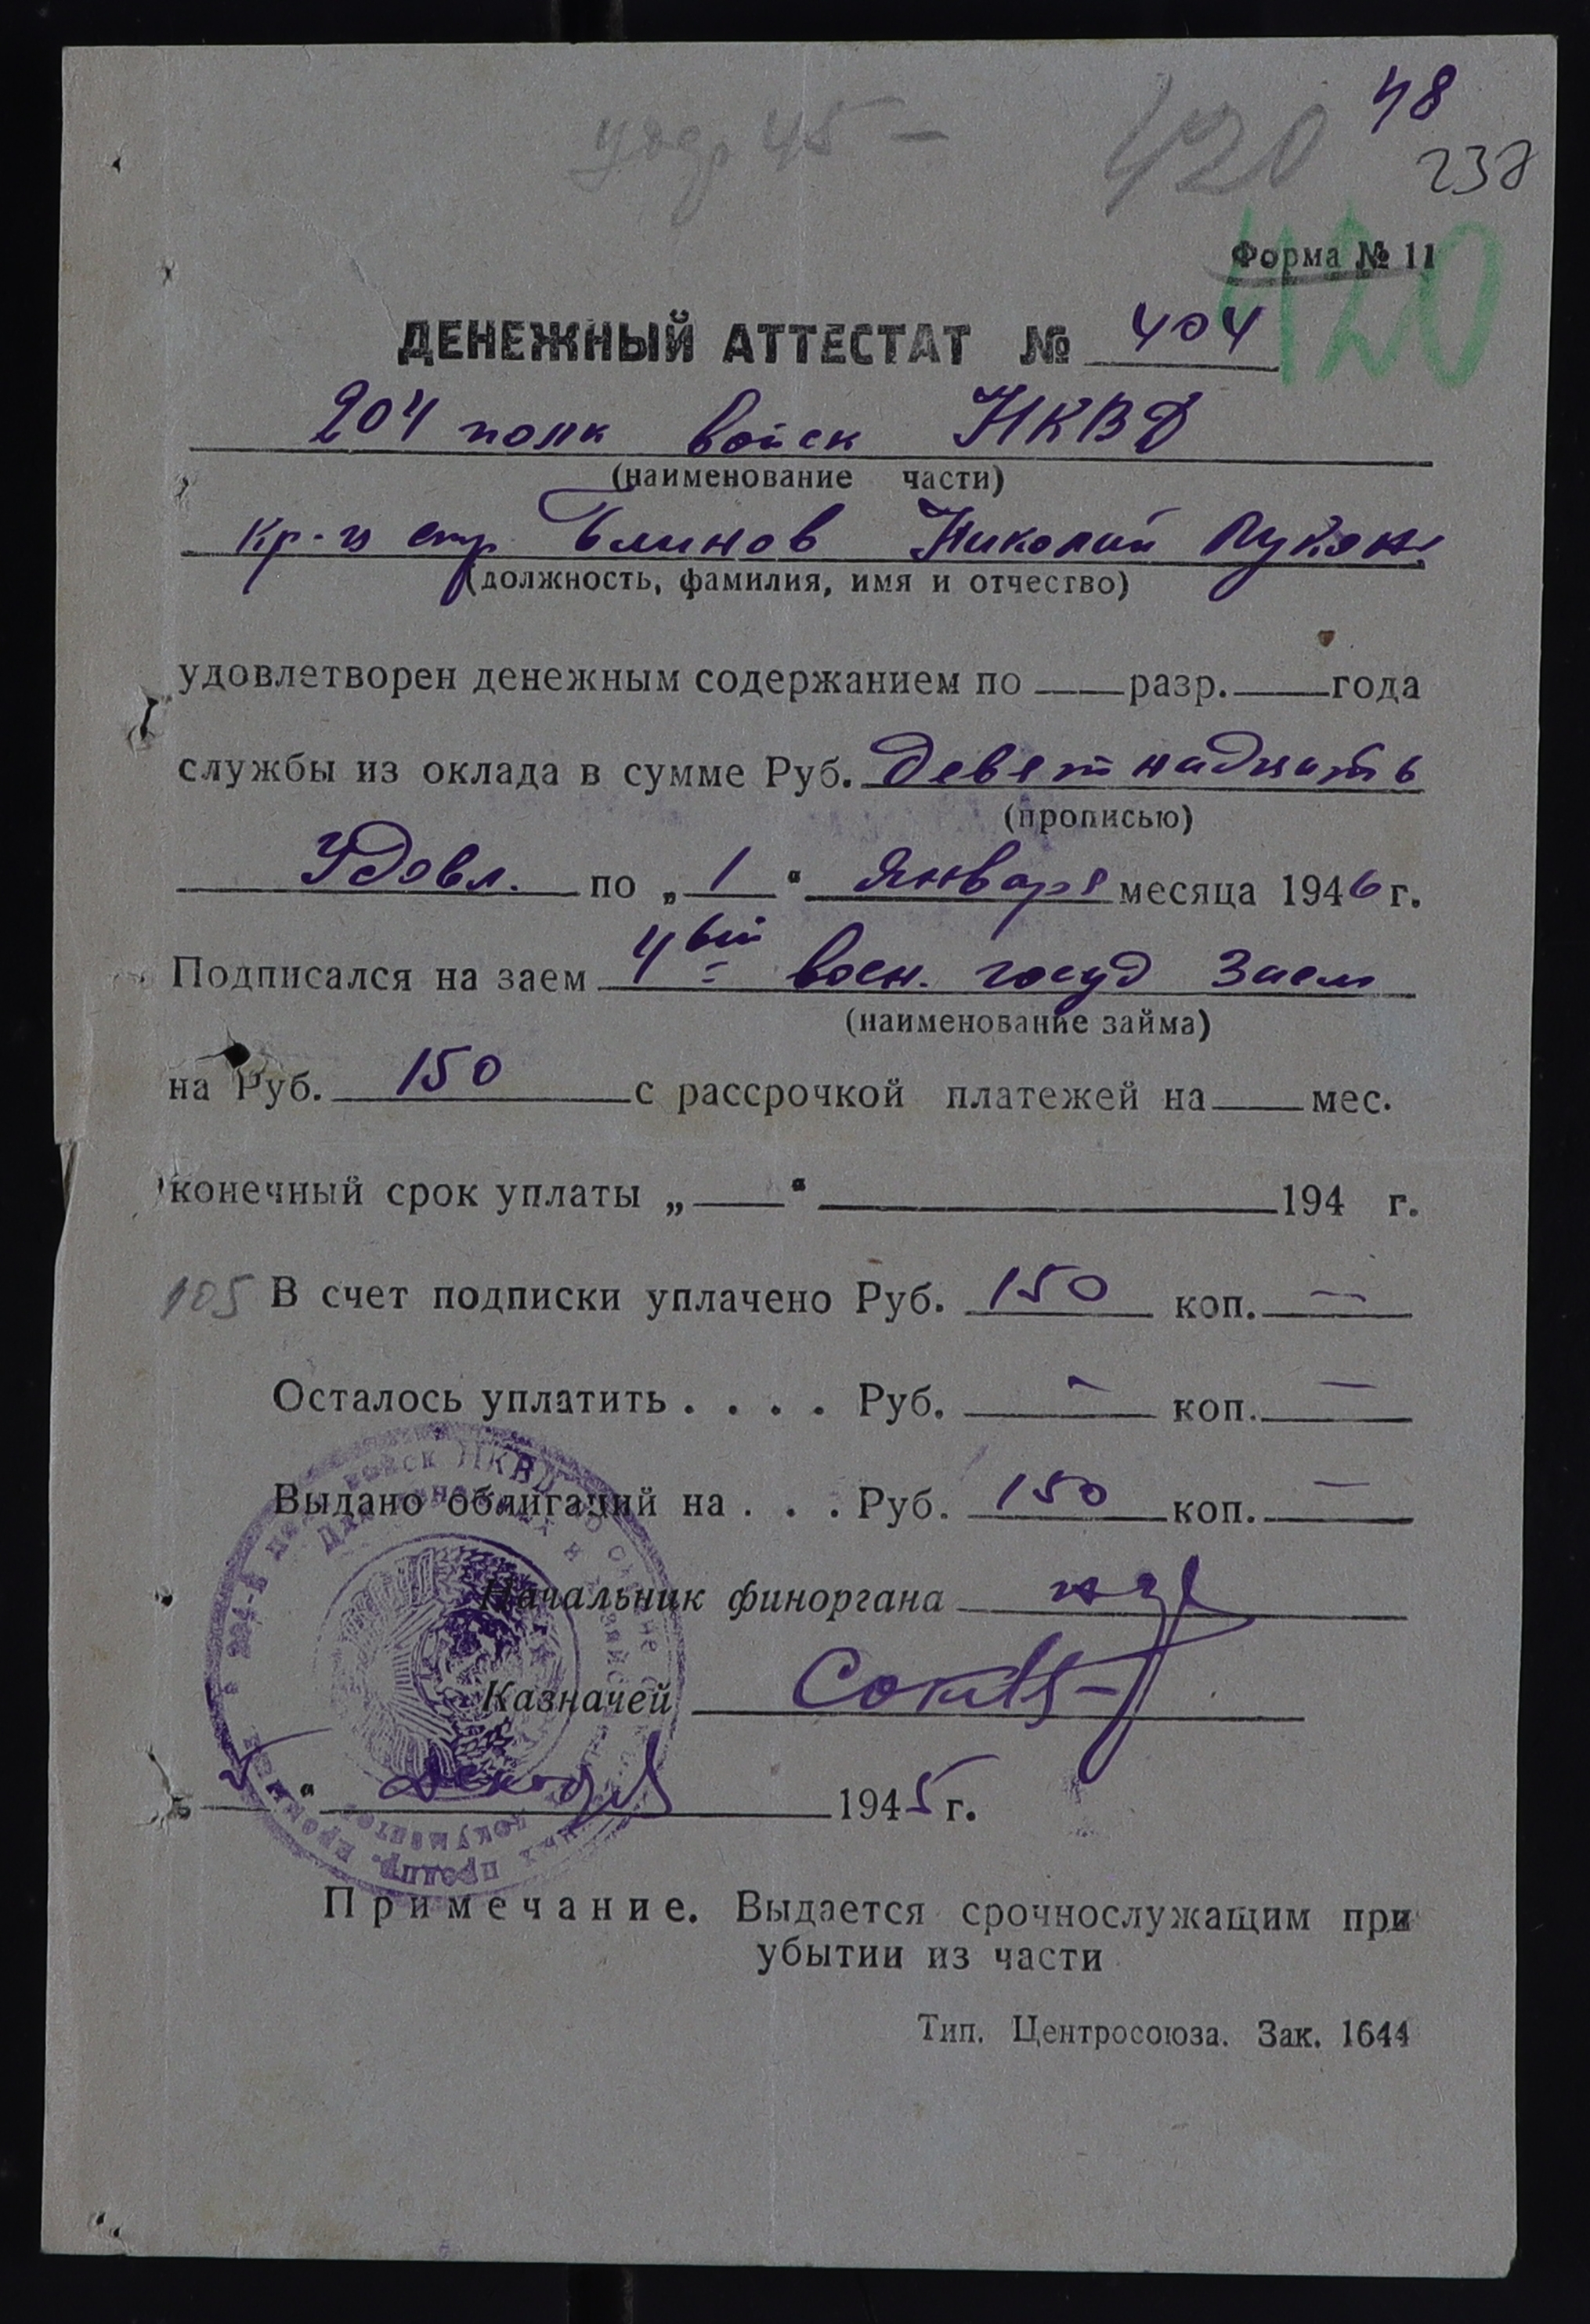 48
420
238
удер 45 —
Форма № 11
420
ДЕНЕЖНЫЙ АТТЕСТАТ № 404
204 полк войск НКВД
(наименование части)
кр-ц стр Блинов Николай Лукян
(должность, фамилия, имя и отчество)
удовлетворен денежным содержанием по ___ разр. ___ года
службы из оклада в сумме Руб. Девятнадцать
(прописью)
Удовл. по „ 1 “ Января месяца 1946 г.
Подписался на заем 4ый воен. госуд Заем
(наименование займа)
на Руб. 150 с рассрочкой платежей на ___ мес.
конечный срок уплаты „___“ ___ 194 г.
105 В счет подписки уплачено Руб. 150 коп. —
Осталось уплатить . . . . Руб. — коп. —
Выдано облигаций на . . . Руб. 150 коп. —
Начальник финоргана
Казначей
5 “ Декабря 1945 г.
Примечание. Выдается срочнослужащим при
убытии из части
Тип. Центросоюза. Зак. 1644